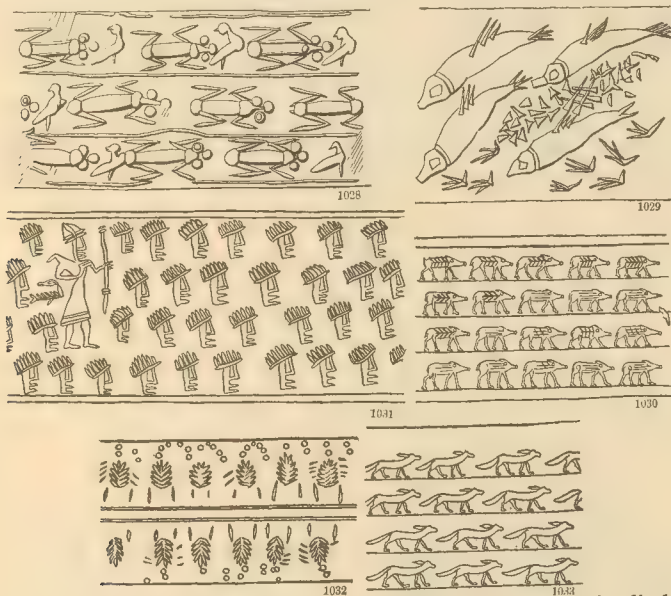 1028
1029
1031
1030
1032
1033